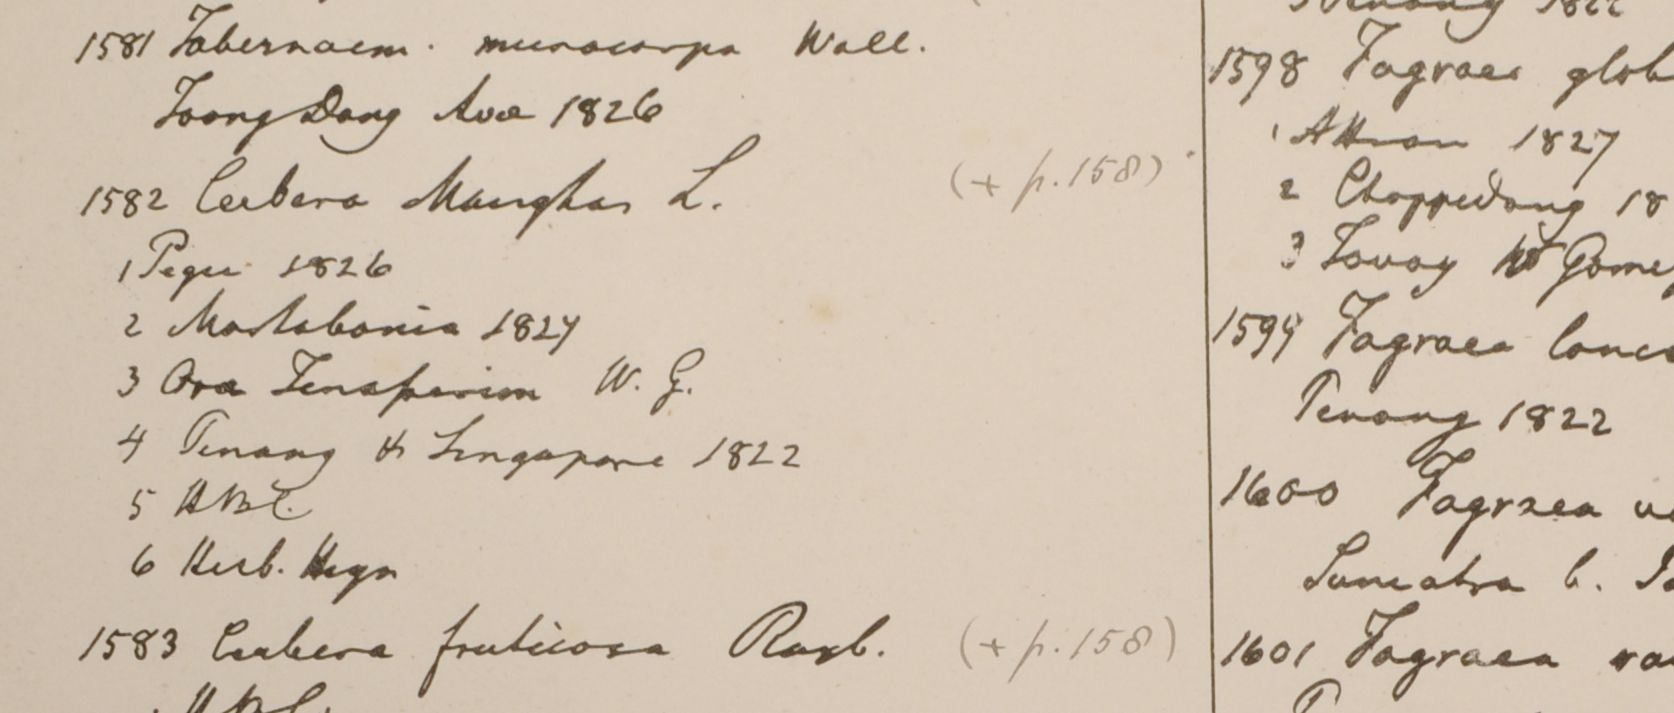 1581 Tabernaem. microcarpa Wall.
Toong Dong Ava 1826
1582 Cerbera Manghas L. (+ p. 158)
1 Pegu 1826
2 Martabania 1827
3 Ora Tenasserim W. G.
4 Penang & Singapore 1822
5 HBC.
6 Herb. Heyn
1583 Cerbera fruticosa Roxb. (+ p. 158)
HBC.
Penang 1822
1598 Fagraea glob
1 Attran 1827
2 Choppedong 18
3 Tavoy W Gome
1599 Fagraea lance
Penang 1822
1600 Fagraea
Sumatra
1601 Fagraea